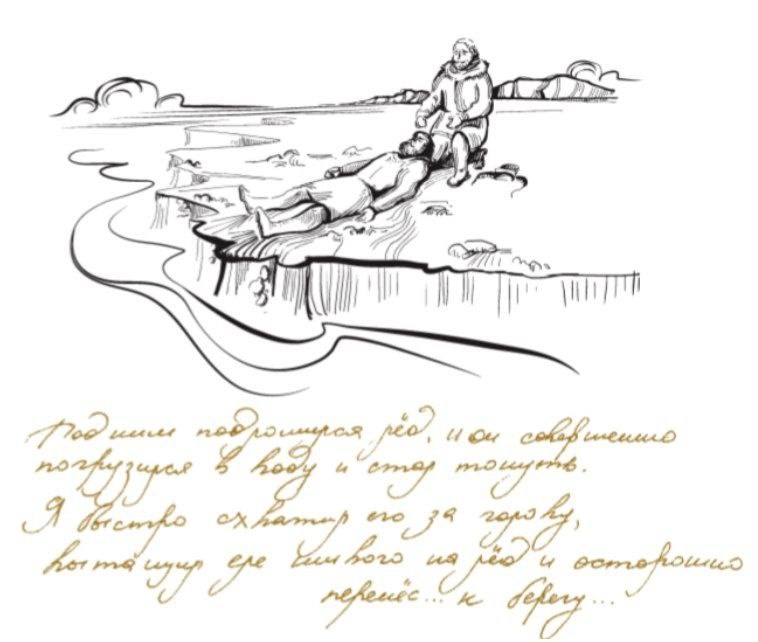 Под ним подломился лёд, и он совершенно
погрузился в воду и стал тонуть.
Я быстро схватил его за голову,
вытащил еле живого на лёд и осторожно
перенёс... к берегу...